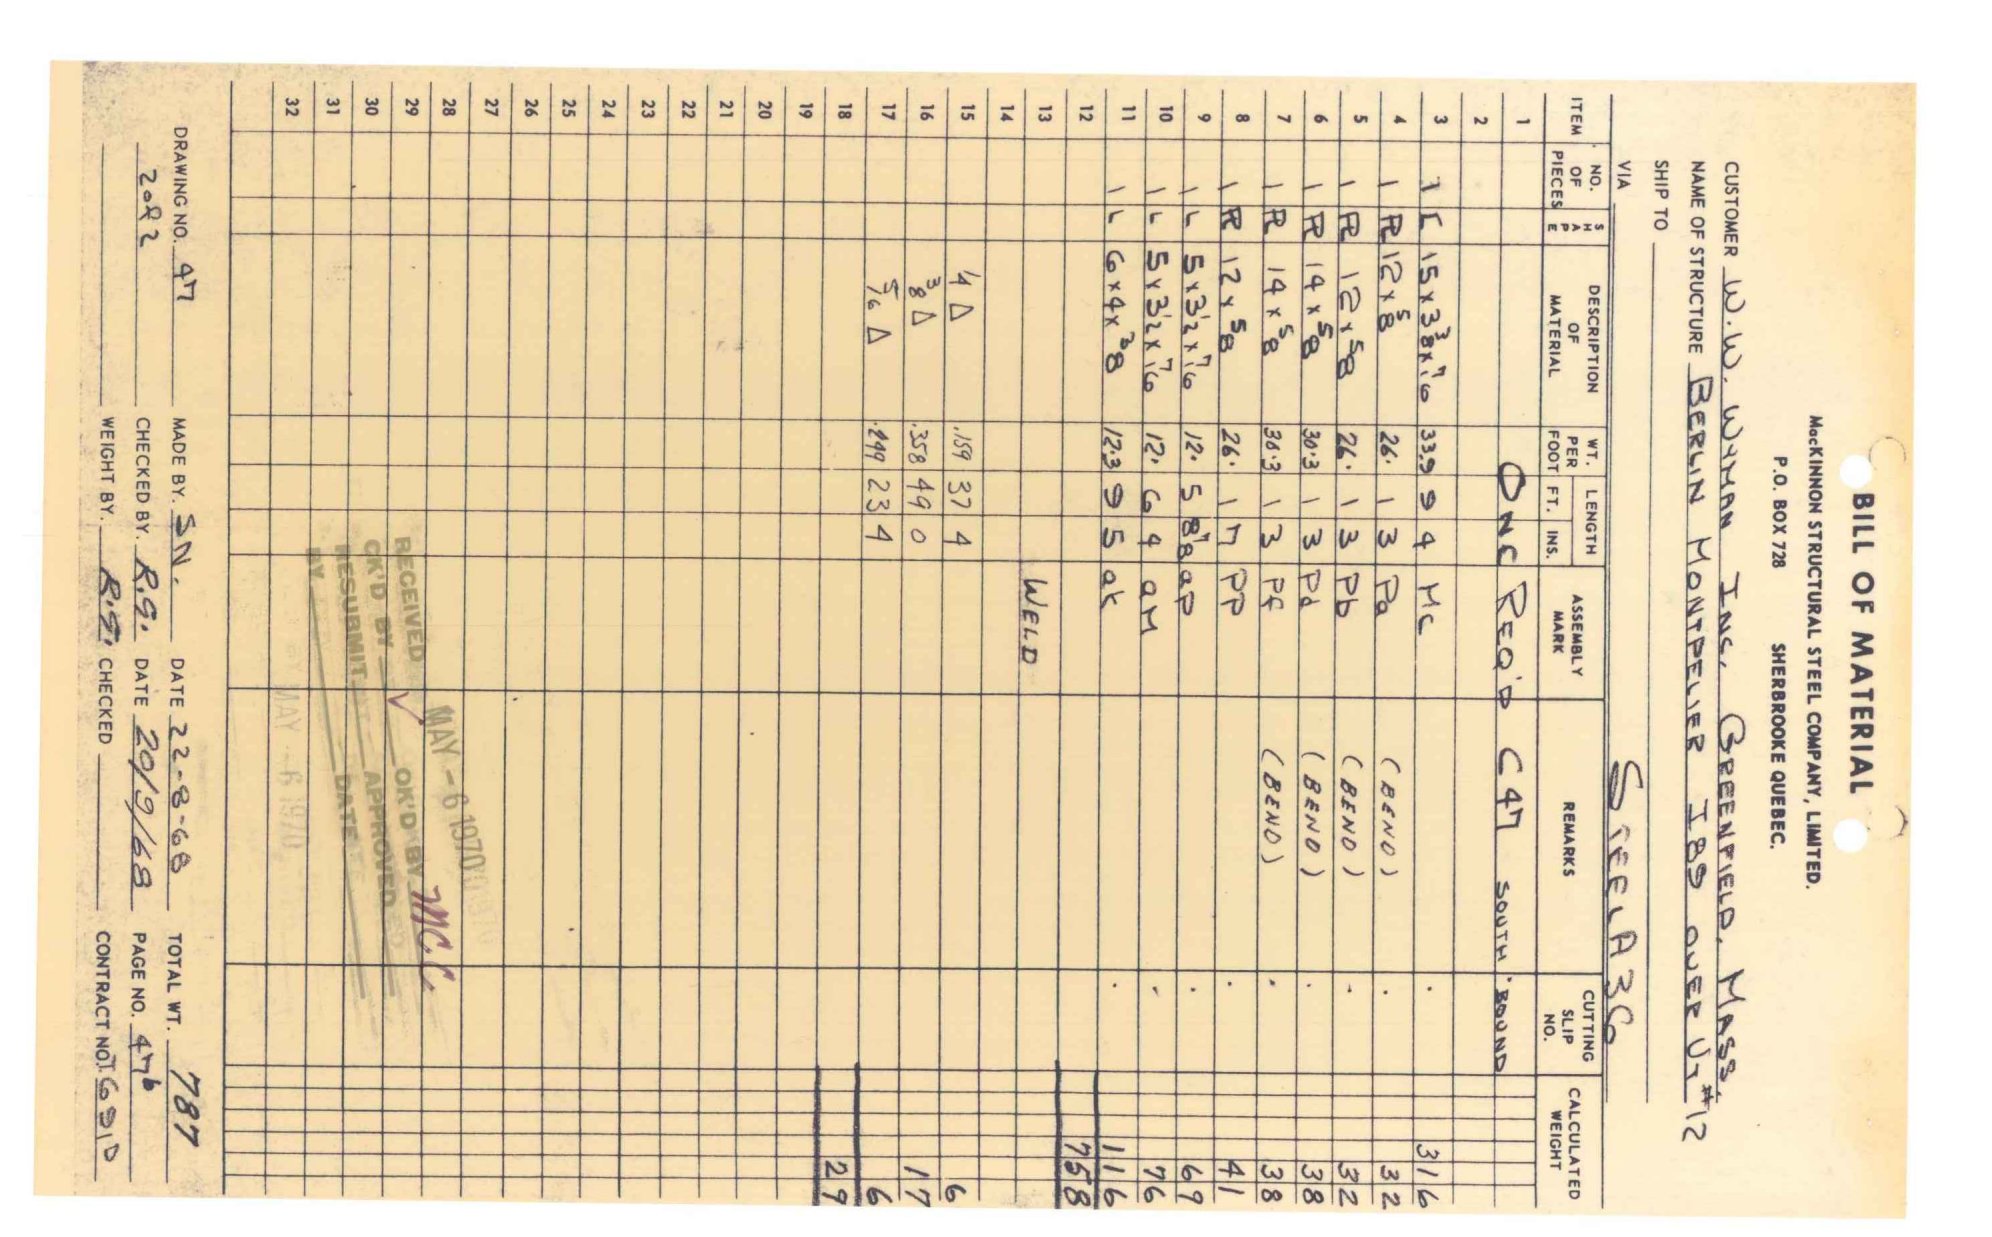 BILL OF MATERIAL
MacKINNON STRUCTURAL STEEL COMPANY, LIMITED.
P.O. BOX 728 SHERBROOKE QUEBEC.
CUSTOMER W.W. WYMAN INC. GREENFIELD, MASS.
NAME OF STRUCTURE BERLIN MONTPELIER I89 OVER VT #12
SHIP TO
VIA STEEL A36
ITEM NO. OF PIECES SHAPE DESCRIPTION OF MATERIAL WT. PER FOOT LENGTH FT. INS. ASSEMBLY MARK REMARKS CUTTING SLIP NO. CALCULATED WEIGHT
1 ONE REQ'D C47 SOUTH BOUND
2
3 1 [ 15 x 3 3/8 x 7/16 33.9 9 4 MC 316
4 1 PL 12 x 5/8 26. 1 3 Pa (BEND) 32
5 1 PL 12 x 5/8 26. 1 3 Pb (BEND) 32
6 1 PL 14 x 5/8 30.3 1 3 Pd (BEND) 38
7 1 PL 14 x 5/8 30.3 1 3 Pf (BEND) 38
8 1 PL 12 x 5/8 26. 1 7 PP 41
9 1 L 5 x 3 1/2 x 7/16 12. 5 8 7/8 aP 69
10 1 L 5 x 3 1/2 x 7/16 12. 6 4 aM 76
11 1 L 6 x 4 x 3/8 12.3 9 5 ak 116
12 758
13 WELD
14
15 1/4 △ .159 37 4 6
16 3/8 △ .358 49 0 17
17 5/16 △ .249 23 4 6
18 29
19
20
21
22
23
24
25
26
27
28
29
30
31
32
MAY - 6 1970
RECEIVED OK'D BY M.C.C.
CK'D BY ✓ APPROVED
RESUBMIT DATE
BY
MAY - 6 1970
DRAWING NO. 47 MADE BY. SN. DATE 22-8-68 TOTAL WT. 787
2082 CHECKED BY. R.G. DATE 20/9/68 PAGE NO. 47b
WEIGHT BY. R.G. CHECKED CONTRACT NO. T691D